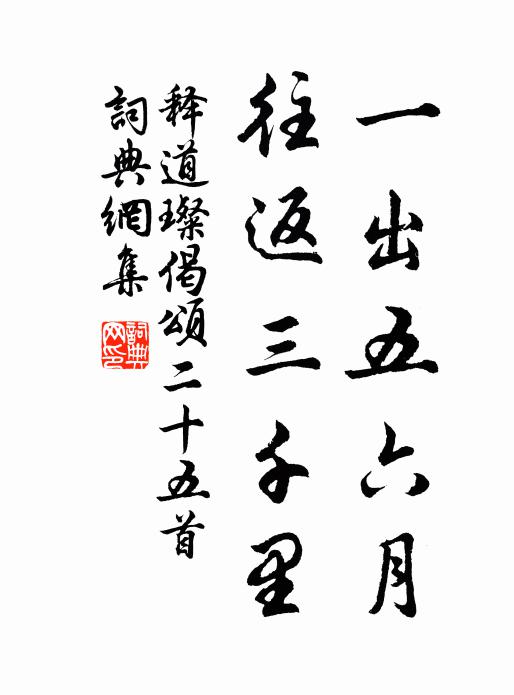 一出五六月
往返三千里
释道璨偈颂二十五首
詞典網集
詞典网印